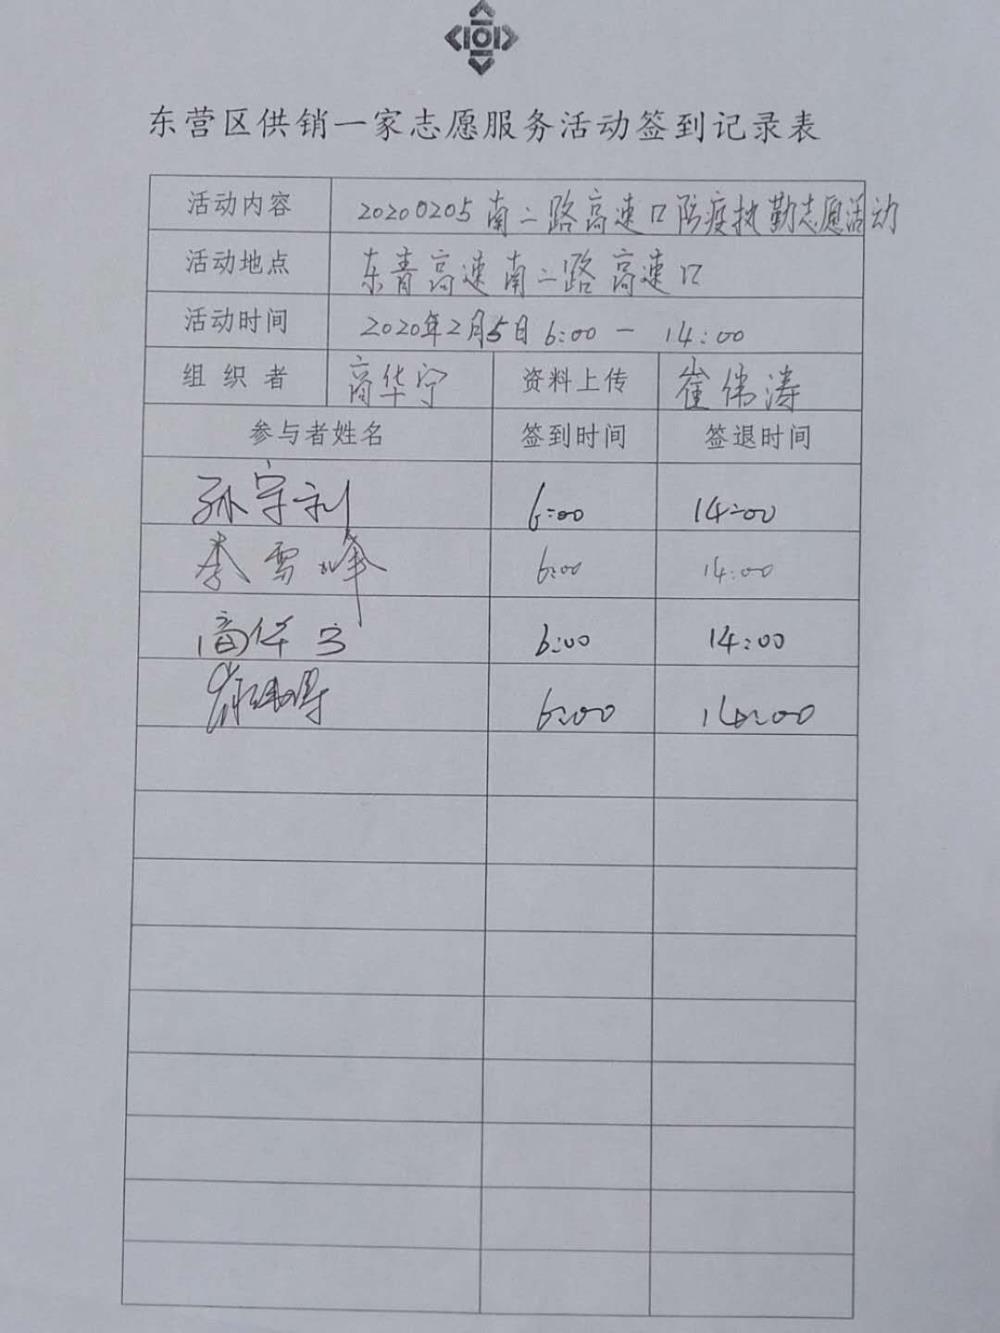 东营区供销一家志愿服务活动签到记录表
活动内容 20200205南二路高速口防疫执勤志愿活动
活动地点 东青高速南二路高速口
活动时间 2020年2月5日6:00-14:00
组织者 商华宁 资料上传 崔伟涛
参与者姓名 签到时间 签退时间
孙守利 6:00 14:00
李雪峰 6:00 14:00
商华宁 6:00 14:00
崔伟涛 6:00 14:00